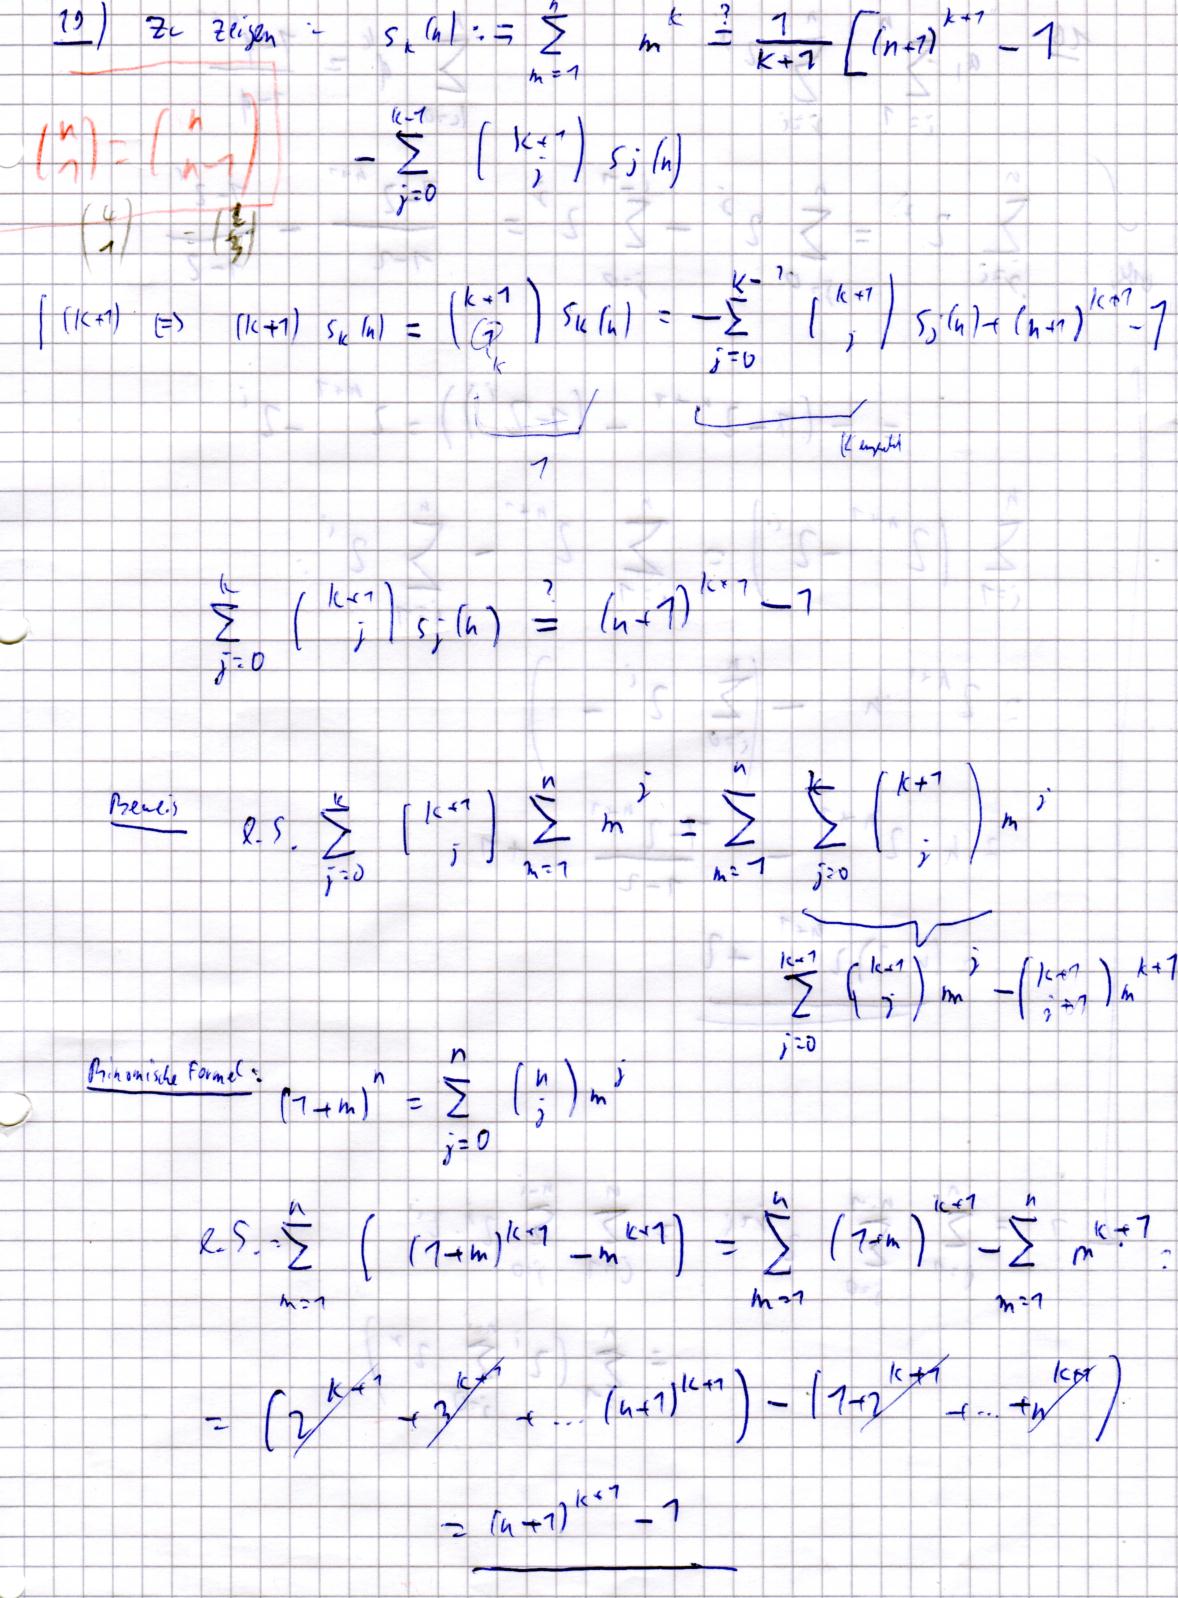 19) Zu zeigen : s_k(n) := ∑_{m=1}^{n} m^k ?= 1/(k+1) [(n+1)^{k+1} - 1
(n 1) = (n n-1) - ∑_{j=0}^{k-1} (k+1 j) s_j(n)
(4 1) =
|(k+1) <=> (k+1) s_k(n) = (k+1 k) s_k(n) = -∑_{j=0}^{k-1} (k+1 j) s_j(n) + (n+1)^{k+1} - 1
1
∑_{j=0}^{k} (k+1 j) s_j(n) ?= (n+1)^{k+1} - 1
Beweis l.S. ∑_{j=0}^{k} (k+1 j) ∑_{m=1}^{n} m^j = ∑_{m=1}^{n} ∑_{j=0}^{k} (k+1 j) m^j
∑_{j=0}^{k+1} (k+1 j) m^j - (k+1 j+1) m^{k+1}
Binomische Formel: (1+m)^n = ∑_{j=0}^{n} (n j) m^j
l.S. = ∑_{m=1}^{n} ((1+m)^{k+1} - m^{k+1}) = ∑_{m=1}^{n} (1+m)^{k+1} - ∑_{m=1}^{n} m^{k+1} =
= (2^{k+1} + 3^{k+1} + ... (n+1)^{k+1}) - (1+2^{k+1} + ... + n^{k+1})
= (n+1)^{k+1} - 1